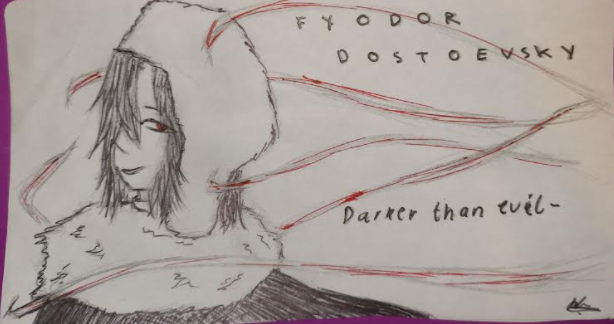 FYODOR
DOSTOEVSKY
Darker than evil-